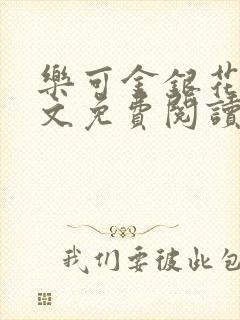 樂可金銀花
文免費閱讀
我们要彼此包